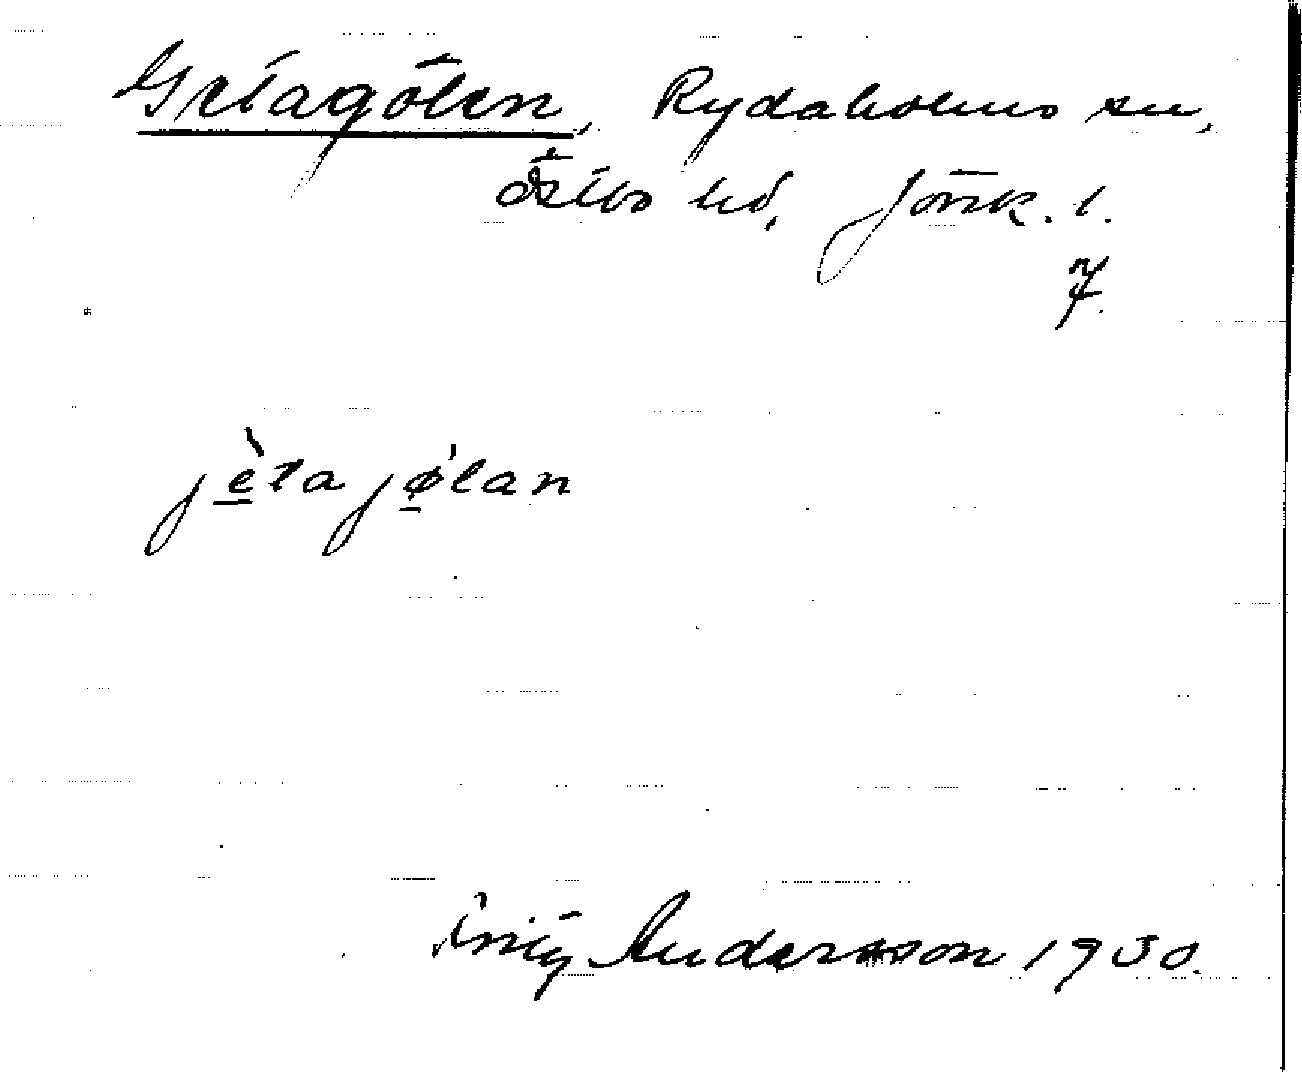 Getagölen, Rydaholms sn,
Östbo hd, Jönk. l.
7.
jètajø̀lan
Andersson 1930.